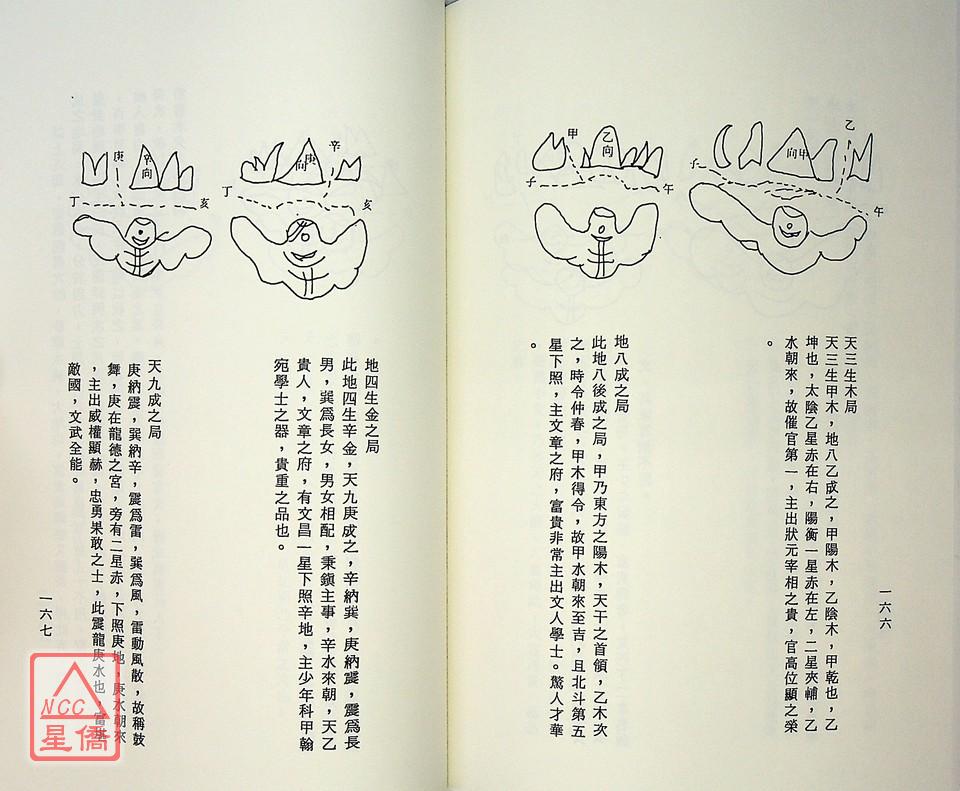 乙
甲向
子
午
甲
乙向
子
午
天三生木局
天三生甲木，地八乙成之，甲陽木，乙陰木，甲乾也，乙
坤也，太陰乙星赤在右，陽衡一星赤在左，二星夾輔，乙
水朝來，故催官第一，主出狀元宰相之貴，官高位顯之榮
。
地八成之局
此地八後成之局，甲乃東方之陽木，天干之首領，乙木次
之，時令仲春，甲木得令，故甲水朝來至吉，且北斗第五
星下照，主文章之府，富貴非常主出文人學士。驚人才華
。
一六六
辛
庚向
丁
亥
庚
辛向
丁
亥
地四生金之局
此地四生辛金，天九庚成之，辛納巽，庚納震，震爲長
男，巽爲長女，男女相配，秉鎭主事，辛水來朝，天乙
貴人，文章之府，有文昌一星下照辛地，主少年科甲翰
宛學士之器，貴重之品也。
天九成之局
庚納震，巽納辛，震爲雷，巽爲風，雷動風散，故稱鼓
舞，庚在龍德之宮，旁有二星赤，下照庚地，庚水朝來
，主出威權顯赫，忠勇果敢之士，此震龍庚水也，富堪
敵國，文武全能。
一六七
NCC
星僑